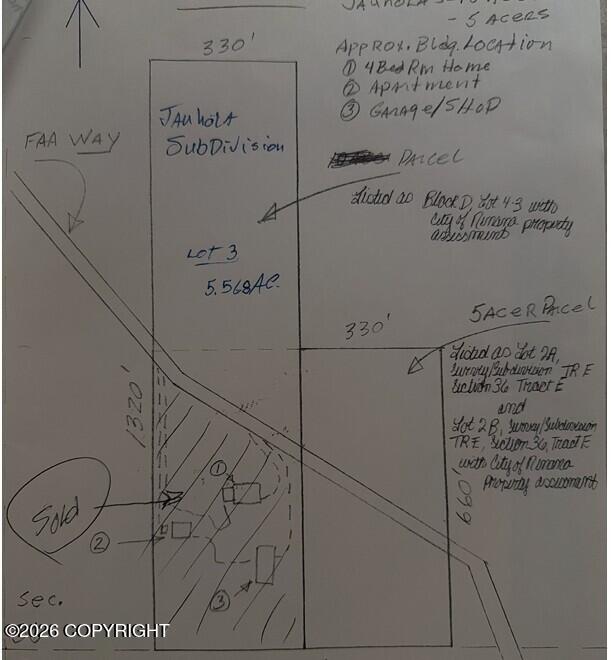 - 5 ACERS
330'
Approx. Bldg. Location
① 4 Bed Rm Home
② Apartment
③ Garage/SHOP
Jauhola
SubDivision
FAA WAY
Parcel
Listed as Block D, Lot 4-3 with
City of Nenana property
assessment
Lot 3
5.568 AC.
5 Acer Parcel
330'
Listed as Lot 2A,
Survey/Subdivision TR E
Section 36 Tract E
and
Lot 2B, Survey/Subdivision
TR E, Section 36, Tract E
with City of Nenana
Property assessment
1320'
660
Sold
①
②
③
Sec.
©2026 COPYRIGHT